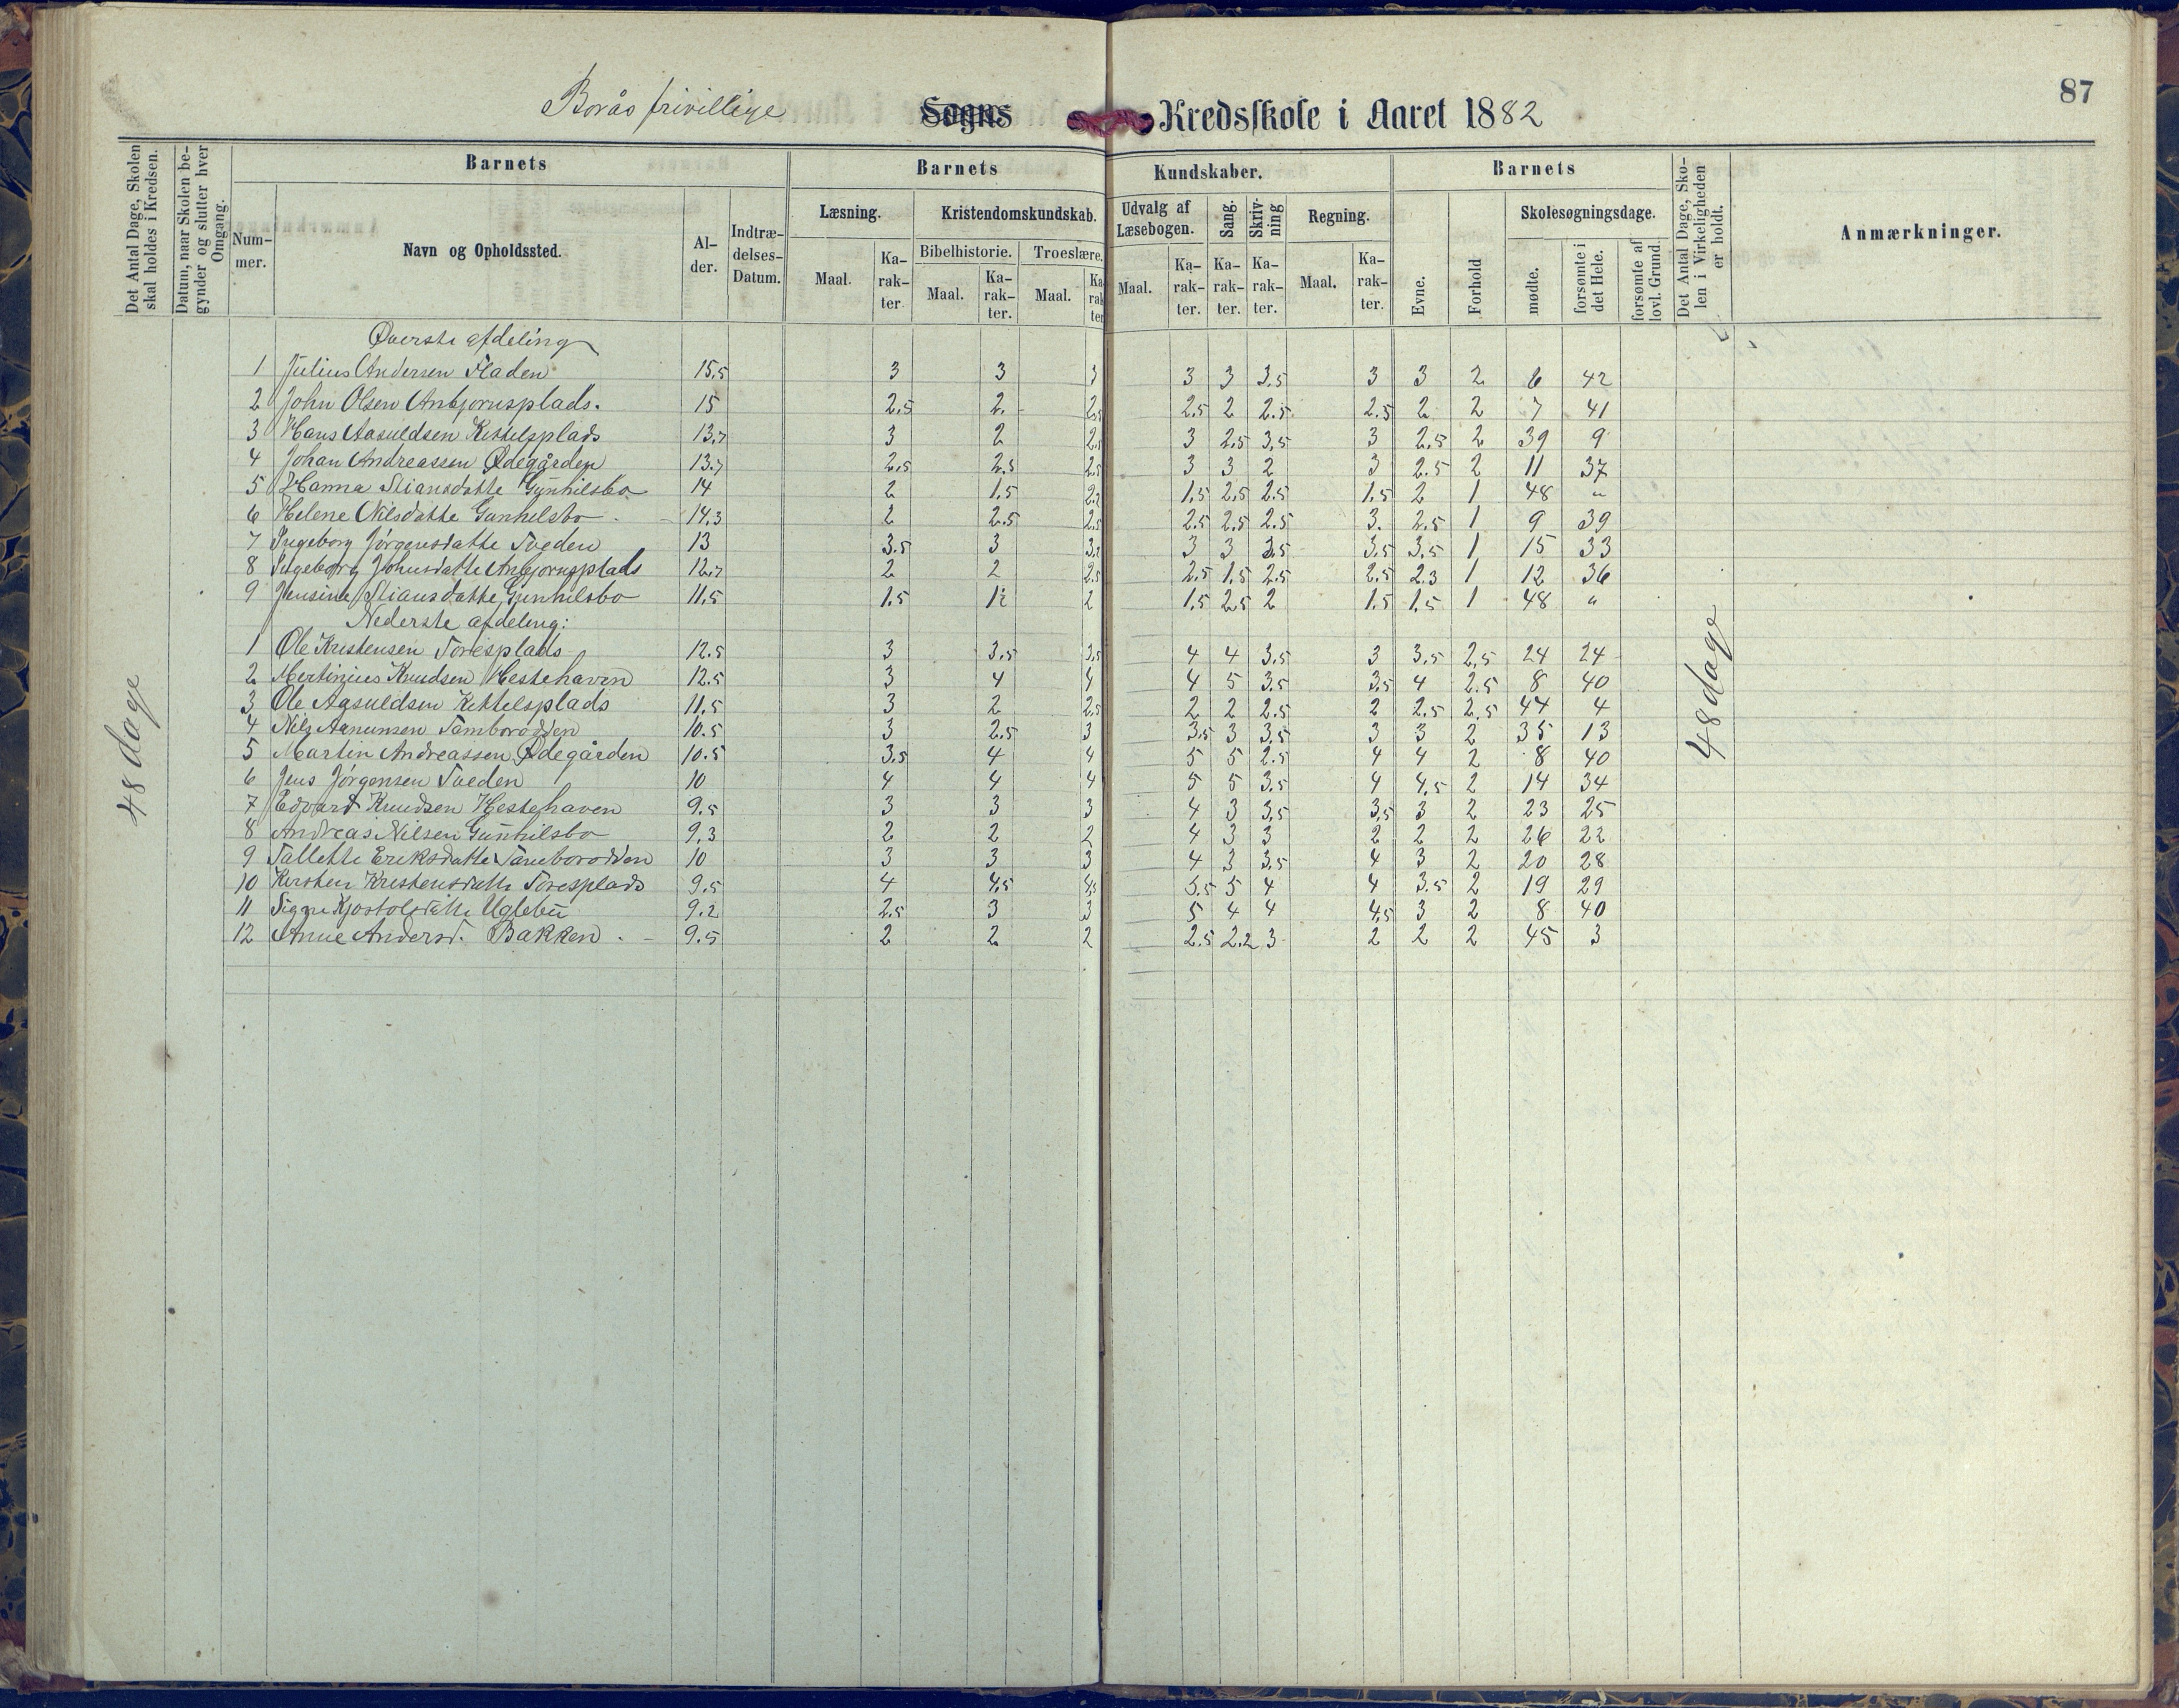 87
Borås frivillige Sogns Kredsskole i Aaret 1882
Det Antal Dage, Skolen skal holdes i Kredsen.
Datum, naar Skolen begynder og slutter hver Omgang.
Barnets
Nummer.
Navn og Opholdssted.
Alder.
Indtrædelses-Datum.
Barnets Kundskaber.
Læsning.
Maal.
Karakter.
Kristendomskundskab.
Bibelhistorie.
Maal.
Karakter.
Troeslære.
Maal.
Karakter
Udvalg af Læsebogen.
Maal.
Karakter.
Sang.
Karakter.
Skrivning
Karakter.
Regning.
Maal.
Karakter.
Barnets
Evne.
Forhold
Skolesøgningsdage.
mødte.
forsømte i det Hele.
forsømte af lovl. Grund.
Det Antal Dage, Skolen i Virkeligheden er holdt.
Anmærkninger.
48 dage
48 dage
Øverste afdeling
1 Julius Andersen Fladen 15,5 3 3 3 3 3 3,5 3 3 2 6 42
2 John Olsen Anbjornsplads. 15 2,5 2. 2,5 2,5 2 2.5 2.5 2 2 7 41
3 Hans Aasuldsen Kittelsplads 13,7 3 2 2,5 3 2,5 3,5 3 2,5 2 39 9
4 Johan Andreassen Ødegården 13.7 2,5 2.5 2,5 3 3 2 3 2.5 2 11 37
5 Hanna Stiansdatte Gunhilsbo 14 2 1.5 1,5 2,5 2.5 1,5 2 1 48 "
6 Helene Nilsdatte Gunhilsbo 14,3 2 2.5 2,5 2.5 2,5 2.5 3. 2.5 1 9 39
7 Ingeborg Jörgensdatte Tveden 13 3.5 3 3 3 3,5 3.5 3,5 1 15 33
8 Ingeborg Johnsdatte Anbjornsplads 12,7 2 2 2.5 2.5 1.5 2.5 2.5 2.3 1 12 36
9 Jensine Stiansdatte Gunhilsbo 11,5 1.5 2 1,5 2.5 2 1.5 1,5 1 48 "
Nederste afdeling:
1 Ole Kristensen Toresplads 12.5 3 3,5 3,5 4 4 3.5 3 3.5 2,5 24 24
2 Mertinius Knudsen Hestehaven 12.5 3 4 4 4 5 3.5 3,5 4 2.5 8 40
3 Ole Aasuldsen Kittelsplads 11.5 3 2 2,5 2 2 2.5 2 2.5 2.5 44 4
4 Nils Aanunsen Tamborodden 10.5 3 2.5 3 3,5 3 3,5 3 3 2 35 13
5 Martin Andreassen Ødegården 10.5 3.5 4 4 5 5 2.5 4 4 2 8 40
6 Jens Jörgensen Tveden 10 4 4 4 5 5 3.5 4 4,5 2 14 34
7 Edvard Knudsen Hestehaven 9.5 3 3 3 4 3 3,5 3,5 3 2 23 25
8 Andreas Nilsen Gunhilsbo 9,3 2 2 2 4 3 3 2 2 2 26 22
9 Tallette Eriksdatte Tamborodden 10 3 3 3 4 3 3.5 4 3 2 20 28
10 Kirsten Kristensdatte Toresplads 9.5 4 4,5 4,5 5.5 5 4 4 3.5 2 19 29
11 Signe Kjostolsdatte Uglebu 9.2 2.5 3 3 5 4 4 4,5 3 2 8 40
12 Anne Andersd. Bakken 9.5 2 2 2 2.5 2.2 3 2 2 2 45 3